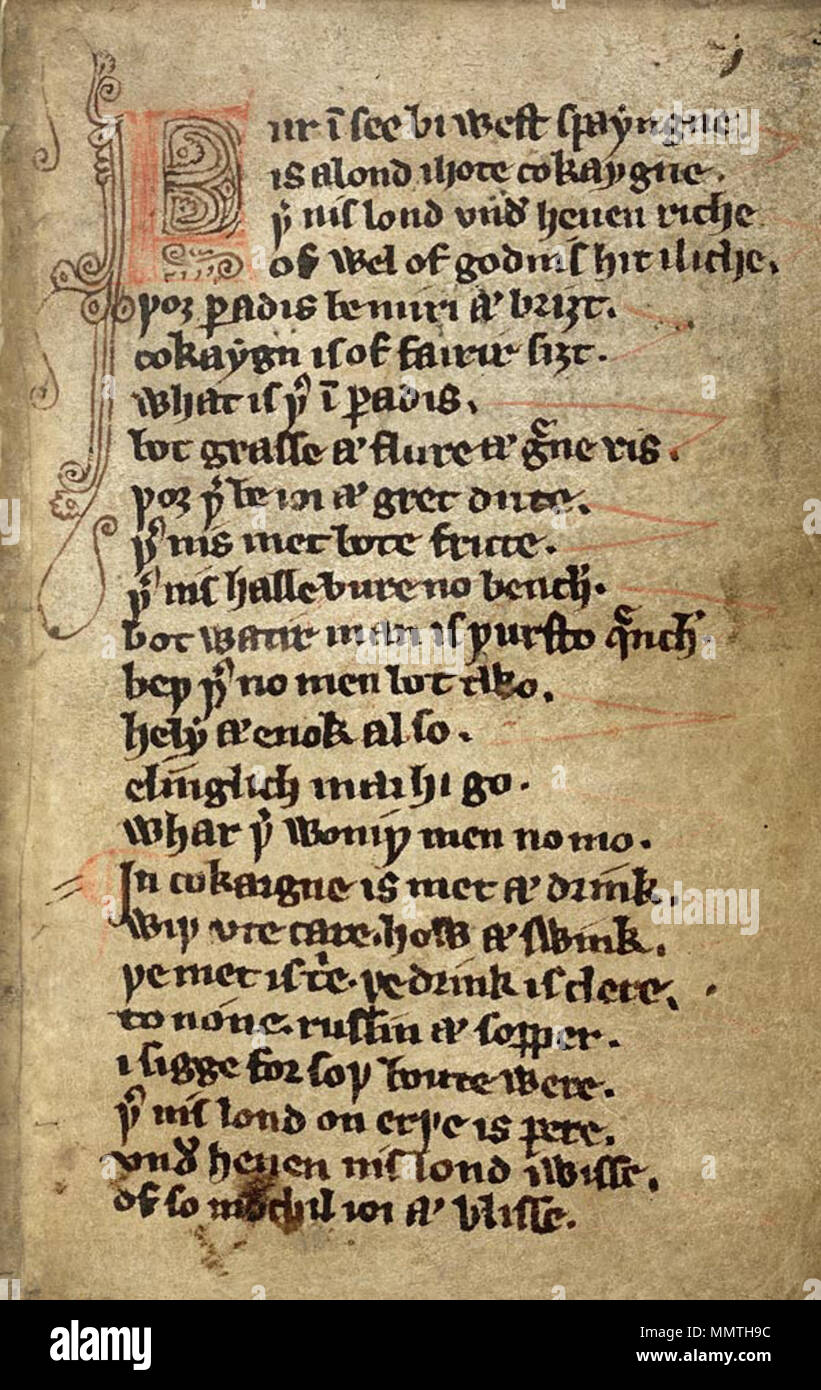 Fur ī see bi west spayngne.
is a lond ihote cokaygne.
þ͛ nis lond vnd͛ heuen riche
of wel of godnis hit iliche.
þoȝ ꝑadis be miri ⁊ briȝt.
cokaygn is of fairir siȝt.
what is þ͛ ī ꝑadis.
bot grasse ⁊ flure ⁊ gͣne ris.
þoȝ þ͛ be ioi ⁊ gret dute.
þ͛ nis met bote frute.
þ͛ nis halle bure no bench.
bot watir man is þursto qͣnch
beþ þ͛ no men bot two.
hely ⁊ enok also.
elīglich mai hi go.
whar þ͛ woniþ men no mo.
In cokaigne is met ⁊ drink.
wiþ vte care. how ⁊ swink.
þe met is t͛e. þe drink is clere.
to none. russin ⁊ sopper.
i sigge for soþ boute were.
þ͛ nis lond on erþe is pere.
vnd͛ heuen nis lond iwisse.
of so mochil ioi ⁊ blisse.
alamy
Image ID: MMTH9C
www.alamy.com